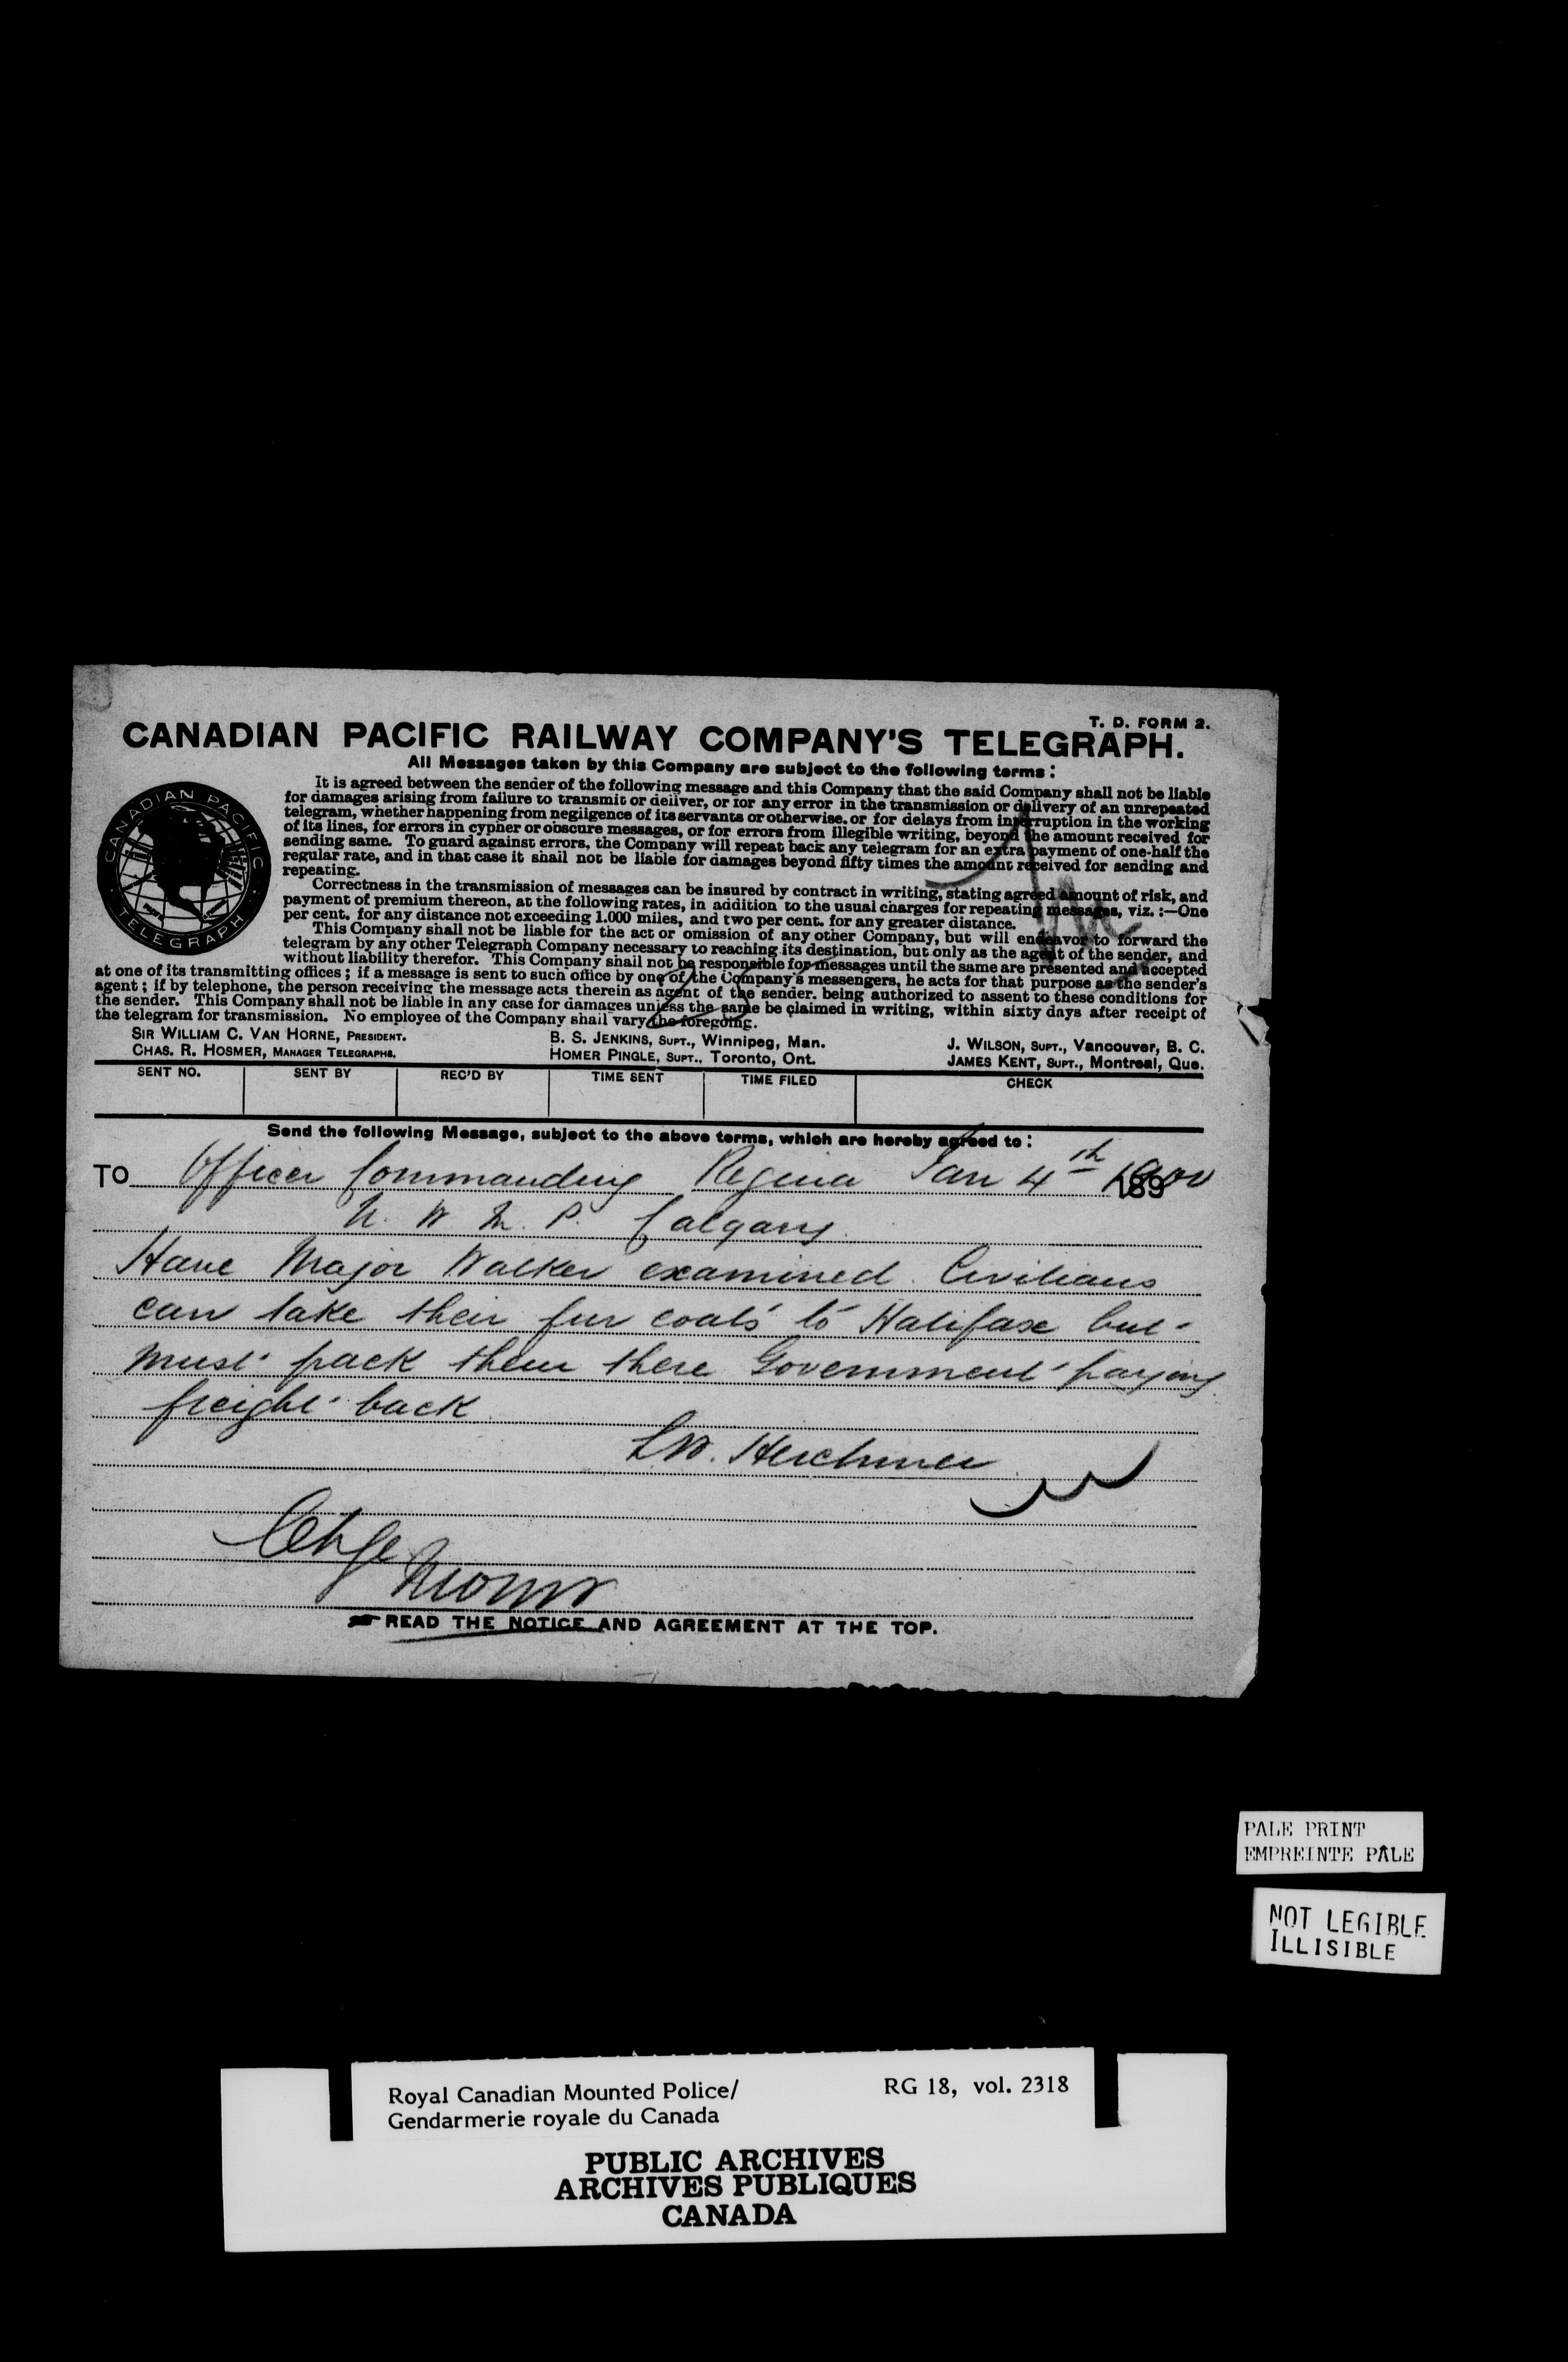 T. D. FORM 2.
CANADIAN PACIFIC RAILWAY COMPANY'S TELEGRAPH.
All Messages taken by this Company are subject to the following terms:
CANADIAN PACIFIC TELEGRAPH
It is agreed between the sender of the following message and this Company that the said Company shall not be liable
for damages arising from failure to transmit or deliver, or for any error in the transmission or delivery of an unrepeated
telegram, whether happening from negligence of its servants or otherwise, or for delays from interruption in the working
of its lines, for errors in cypher or obscure messages, or for errors from illegible writing, beyond the amount received for
sending same. To guard against errors, the Company will repeat back any telegram for an extra payment of one-half the
regular rate, and in that case it shall not be liable for damages beyond fifty times the amount received for sending and
repeating.
Correctness in the transmission of messages can be insured by contract in writing, stating agreed amount of risk, and
payment of premium thereon, at the following rates, in addition to the usual charges for repeating messages, viz. :—One
per cent. for any distance not exceeding 1.000 miles, and two per cent. for any greater distance.
This Company shall not be liable for the act or omission of any other Company, but will endeavor to forward the
telegram by any other Telegraph Company necessary to reaching its destination, but only as the agent of the sender, and
without liability therefor. This Company shall not be responsible for messages until the same are presented and accepted
at one of its transmitting offices ; if a message is sent to such office by one of the Company's messengers, he acts for that purpose as the sender's
agent ; if by telephone, the person receiving the message acts therein as agent of the sender. being authorized to assent to these conditions for
the sender. This Company shall not be liable in any case for damages unless the same be claimed in writing, within sixty days after receipt of
the telegram for transmission. No employee of the Company shall vary the foregoing.
25
SIR WILLIAM C. VAN HORNE, PRESIDENT. B. S. JENKINS, SUPT., Winnipeg, Man. J. WILSON, SUPT., Vancouver, B. C.
CHAS. R. HOSMER, MANAGER TELEGRAPHS. HOMER PINGLE, SUPT., Toronto, Ont. JAMES KENT, SUPT., Montreal, Que.
SENT NO. SENT BY REC'D BY TIME SENT TIME FILED CHECK
Send the following Message, subject to the above terms, which are hereby agreed to :
TO Officer Commanding Regina Jan 4th 1900
N. W. M. P. Calgary
Have Major Walker examined. Civilians
can take their fur coats to Halifax but
must pack them there Government paying
freight back
L.W. Herchmer
Chge
READ THE NOTICE AND AGREEMENT AT THE TOP.
PALE PRINT
EMPREINTE PÂLE
NOT LEGIBLE
ILLISIBLE
Royal Canadian Mounted Police/ RG 18, vol. 2318
Gendarmerie royale du Canada
PUBLIC ARCHIVES
ARCHIVES PUBLIQUES
CANADA